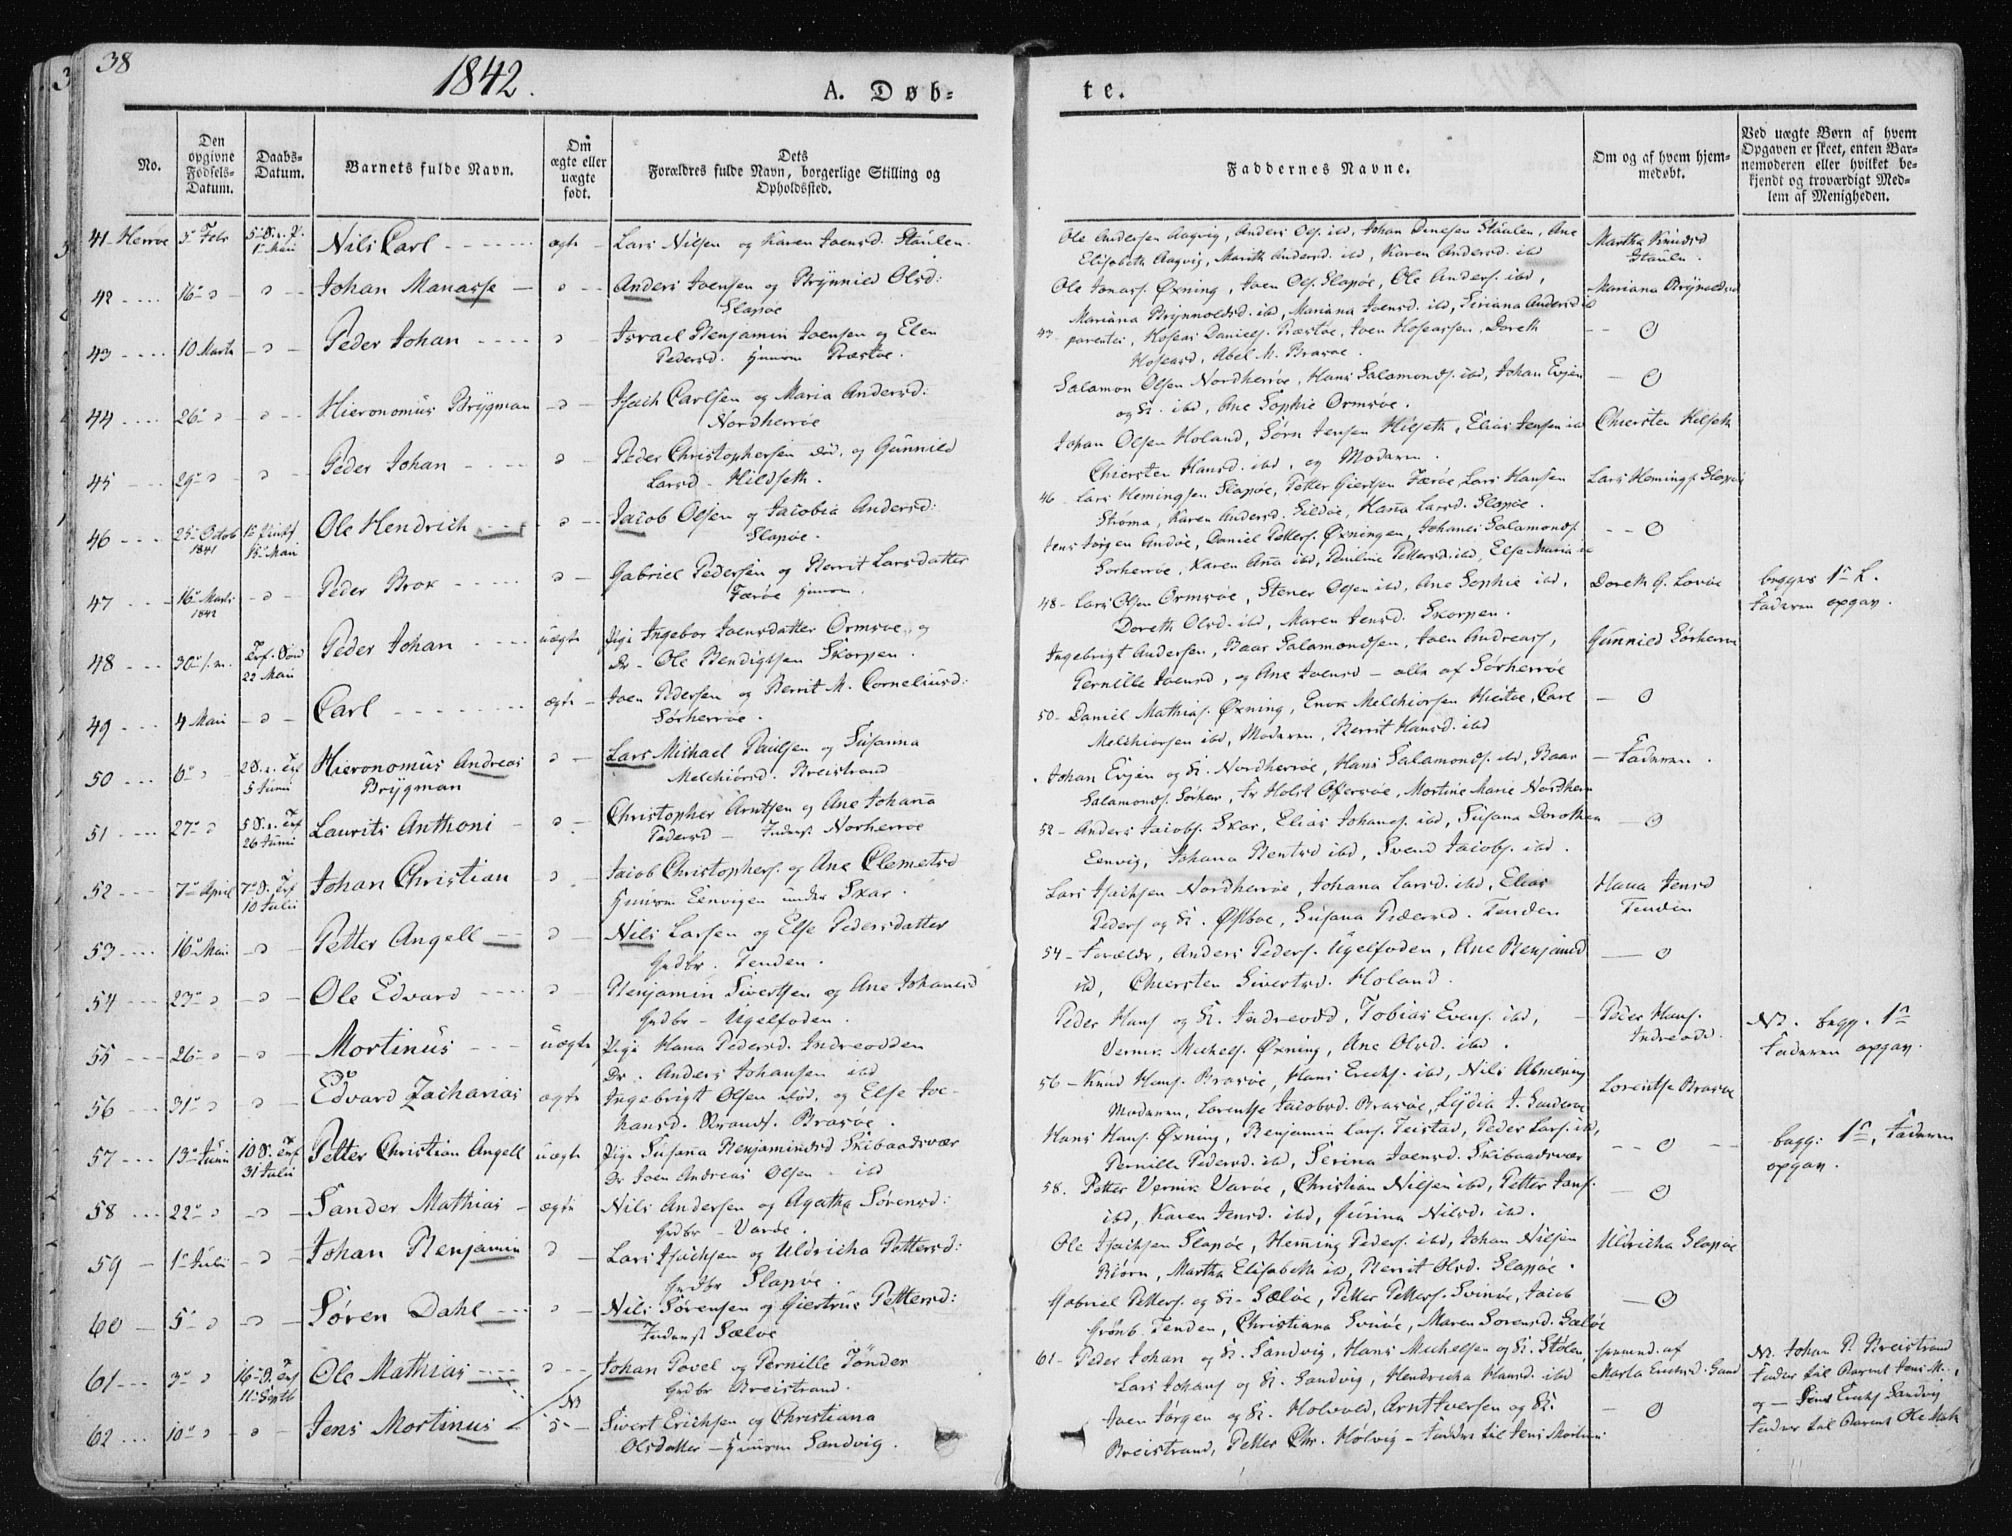 38
1842.
A. Døb=
te.
No.
Den opgivne Fødsels-Datum.
Daabs-Datum.
Barnets fulde Navn.
Om ægte eller uægte født.
Dets Forældres fulde Navn, borgerlige Stilling og Opholdssted.
Faddernes Navne.
Om og af hvem hjemmedøbt.
Ved uægte Børn af hvem Opgaven er skeet, enten Barnemoderen eller hvilket bekjendt og troværdigt Medlem af Menigheden.
41 - Herrøe 5 Febr 1 Mai Nils Carl ægte Lars Nilsen og Karen Joensd. Staulen
Ole Andersen Aagvig, Anders Ols. ibd, Johan Staulen, Ane
Elisabeth Aagvig, Marith Andersd. ibd, Karen Andersd. ibd
Martha Knudsd Staulen
42 16 Johan Manasse Anders Joensen og Brynnild Olsd:
Slapøe
Ole Jonass. Øxning, Joen Ols. Slapøe, Ole Anders. ibd,
Mariana Brynnoldsd ibd, Mariana Joensd. ibd, Siriana Andersd ibd
Mariana Brynnoldsd
43 10 Marts Peder Johan Israel Benjamin Joensen og Elen
Pedersd. Huusm Præstøe.
43 - parentes, Hoseas Daniels. Præstøe, Joen Hoseassen, Doreth
Hoseasd, Abel M. Brasøe.
44 26 Hieronomus Brygman Isach Carlsen og Maria Andersd:
Nordherrøe
Salamon Olsen Nordherrøe, Hans Salamons. ibd, Johan Evjen
og K. ibd, Ane Sophie Ormsøe.
45 29 Peder Johan Peder Christophersen død, og Gunnild
Larsd. Hildseth.
Johan Olsen Holand, Sørn Jensen Hilseth, Elias Jensen ibd
Chiersten Hansd. ibd, og Moderen.
Chiersten Hilseth
46 25 Octob 1841 Mai Ole Hendrich Jacob Olsen og Jacobia Andersd:
Slapøe.
46 - Lars Hemingsen Slapøe, Petter Giertsen Færøe, Lars Hansen
Strøma, Karen Andersd. Sildøe, Hanna Larsd. Slapøe.
Lars Hemings. Slapøe
47 16 Marts 1842 Peder Brox Gabriel Pedersen og Berrit Larsdatter
Færøe Huusm.
Jens Jørgen Andøe, Daniel Petters. Øxningen, Johanes Salamons.
Sorherrøe, Karen Anna ibd, Pauline Pettersd. ibd, Else Maria ibd
48 30 22 Mai Peder Johan uægte Pige Ingebor Joensdatter Ormsøe, og
Dr - Ole Bendigtsen Skorpen.
48 - Lars Olsen Ormsøe, Stener Olsen ibd, Ane Sophie ibd,
Doreth Olsd. ibd, Maren Jensd. Skorpen.
Doreth O. Lovøe
begges 1ste L.
Faderen opgav.
49 4 Mai Carl ægte Joen Pedersen og Berrit M. Corneliusd:
Sørherrøe.
Ingebrigt Andersen, Baar Salamonsen, Joen Andreass,
Pernille Joensd, og Ane Joensd - alle af Sørherrøe
Gunnild Sørherrøe
50 6 5 Junii Hieronomus Andreas
Brygman Lars Michael Paulsen og Susanna
Melchiorsd. Breistrand
50 - Daniel Mathias. Øxning, Enok Melchiorsen Hestøe, Carl
Melchiorsen ibd, Moderen, Berrit Hansd. ibd
51 27 26 Junii Laurits Anthoni Christopher Arntsen og Ane Johanna
Pedersd - Inders. Norherrøe
Johan Evjen og K. Nordherrøe, Hans Salamons. ibd, Baar
Salamons. Sørherr, Fr Holst Offersøe, Mortine Marie Nordherr
- Faderen.
52 7 April 10 Julii Johan Christian Jacob Christophers. og Ane Clemetsd
Huusm Eenvigen under Skar
52 - Anders Jacobs. Skar, Elias Johans. ibd, Susana Dorothea
Eenvig, Johana Bentsd ibd, Svend Jacobs. ibd.
53 16 Mai Petter Angell Nils Larsen og Else Pedersdatter
Grdbr. Tenden.
Lars Isachsen Nordherrøe, Johana Larsd. ibd, Elias
Peders og K. Østboe, Susana Pedersd. Tenden
Hana Jensd Tenden
54 23 Ole Edvard Benjamin Sivertsen og Ane Johansd
Grdbr - Ugelfoden.
54 - Forældr, Anders Peders. Ugelfoden, Ane Benjamsd
ibd, Chiersten Sivertsd. Holand.
55 26 Mortinus uægte Pige Hana Pedersd. Indreodden
Dr. Anders Johansen ibd
Peder Hans og K. Indreodd, Tobias Evens. ibd,
Vernik Michels. Øxning, Ane Olsd. ibd.
Peder Hans. Indreodd.
Nt. begg. 1ste
Faderen opgav.
56 31 Edvard Zacharias ægte Ingebrigt Olsen død, og Else Johansd. Brasøe.
56 - Knud Hans. Brasøe, Hans Erichs. ibd, Nils Almening
Moderen, Lorentse Jacobsd. Brasøe, Lydia J. Sanderøe
Lorentse Brasøe
57 13 Junii 31 Julii Petter Christian Angell uægte Pige Susana Benjaminsd Skibaadsvær
Dr Joen Andreas Olsen - ibd
Hans Hans. Øxning, Benjamin Lars. Teistad, Peder Lars. ibd,
Pernille Pedersd. ibd, Serina Joensd. Skibaadsvær
begg: 1ste, Faderen
opgav.
58 22 Sander Mathias ægte Nils Andersen og Agatha Sørensd:
Grdbr - Varøe.
58. Petter Vernik Varøe, Christian Nilsen ibd, Petter Jans.
ibd, Karen Jensd. ibd, Nilsd. ibd.
59 1 Julii Johan Benjamin Lars Isachsen og Uldricha Pettersd:
Grdbr Slapøe.
Ole Isachsen Slapøe, Heming Peders. ibd, Johan Nilsen
Biørn, Martha Elisabeth ibd, Berrit Olsd. Slapøe.
Uldricha Slapøe
60 5 Søren Dahl Nils Sørensen og Giertrue Pettersd:
Sæløe
Gabriel Petters. og K. Sæløe, Petter Petters. Svinøe, Jacob
Grønb. Tenden, Christiana Svinøe, Maren Sorensd. Sæløe
61 3 11 Septb Ole Mathias Johan Povel og Pernille Tønder
Grdbr Breistrand.
61 - Peder Johan og K. Sandvig, Hans Michelsen og K. Stølen
Lars Johans og K. Sandvig, Hendricha Hansd. ibd
Marta Erichsd. Sand
Nt. Johan P. Breistrand
Fader til Barnet Jens M.
62 10 Jens Mortinus Sivert Erichsen og Christiana
Olsdatter - Huusm Sandvig.
Joen Jørgen og K. Holvold, Arnt Iversen og K.
Breistrand, Petter Chr. Holvig - Fadder til Jens Mortinus
og - Erichs Sandvig
Fader til Barnet Ole Math